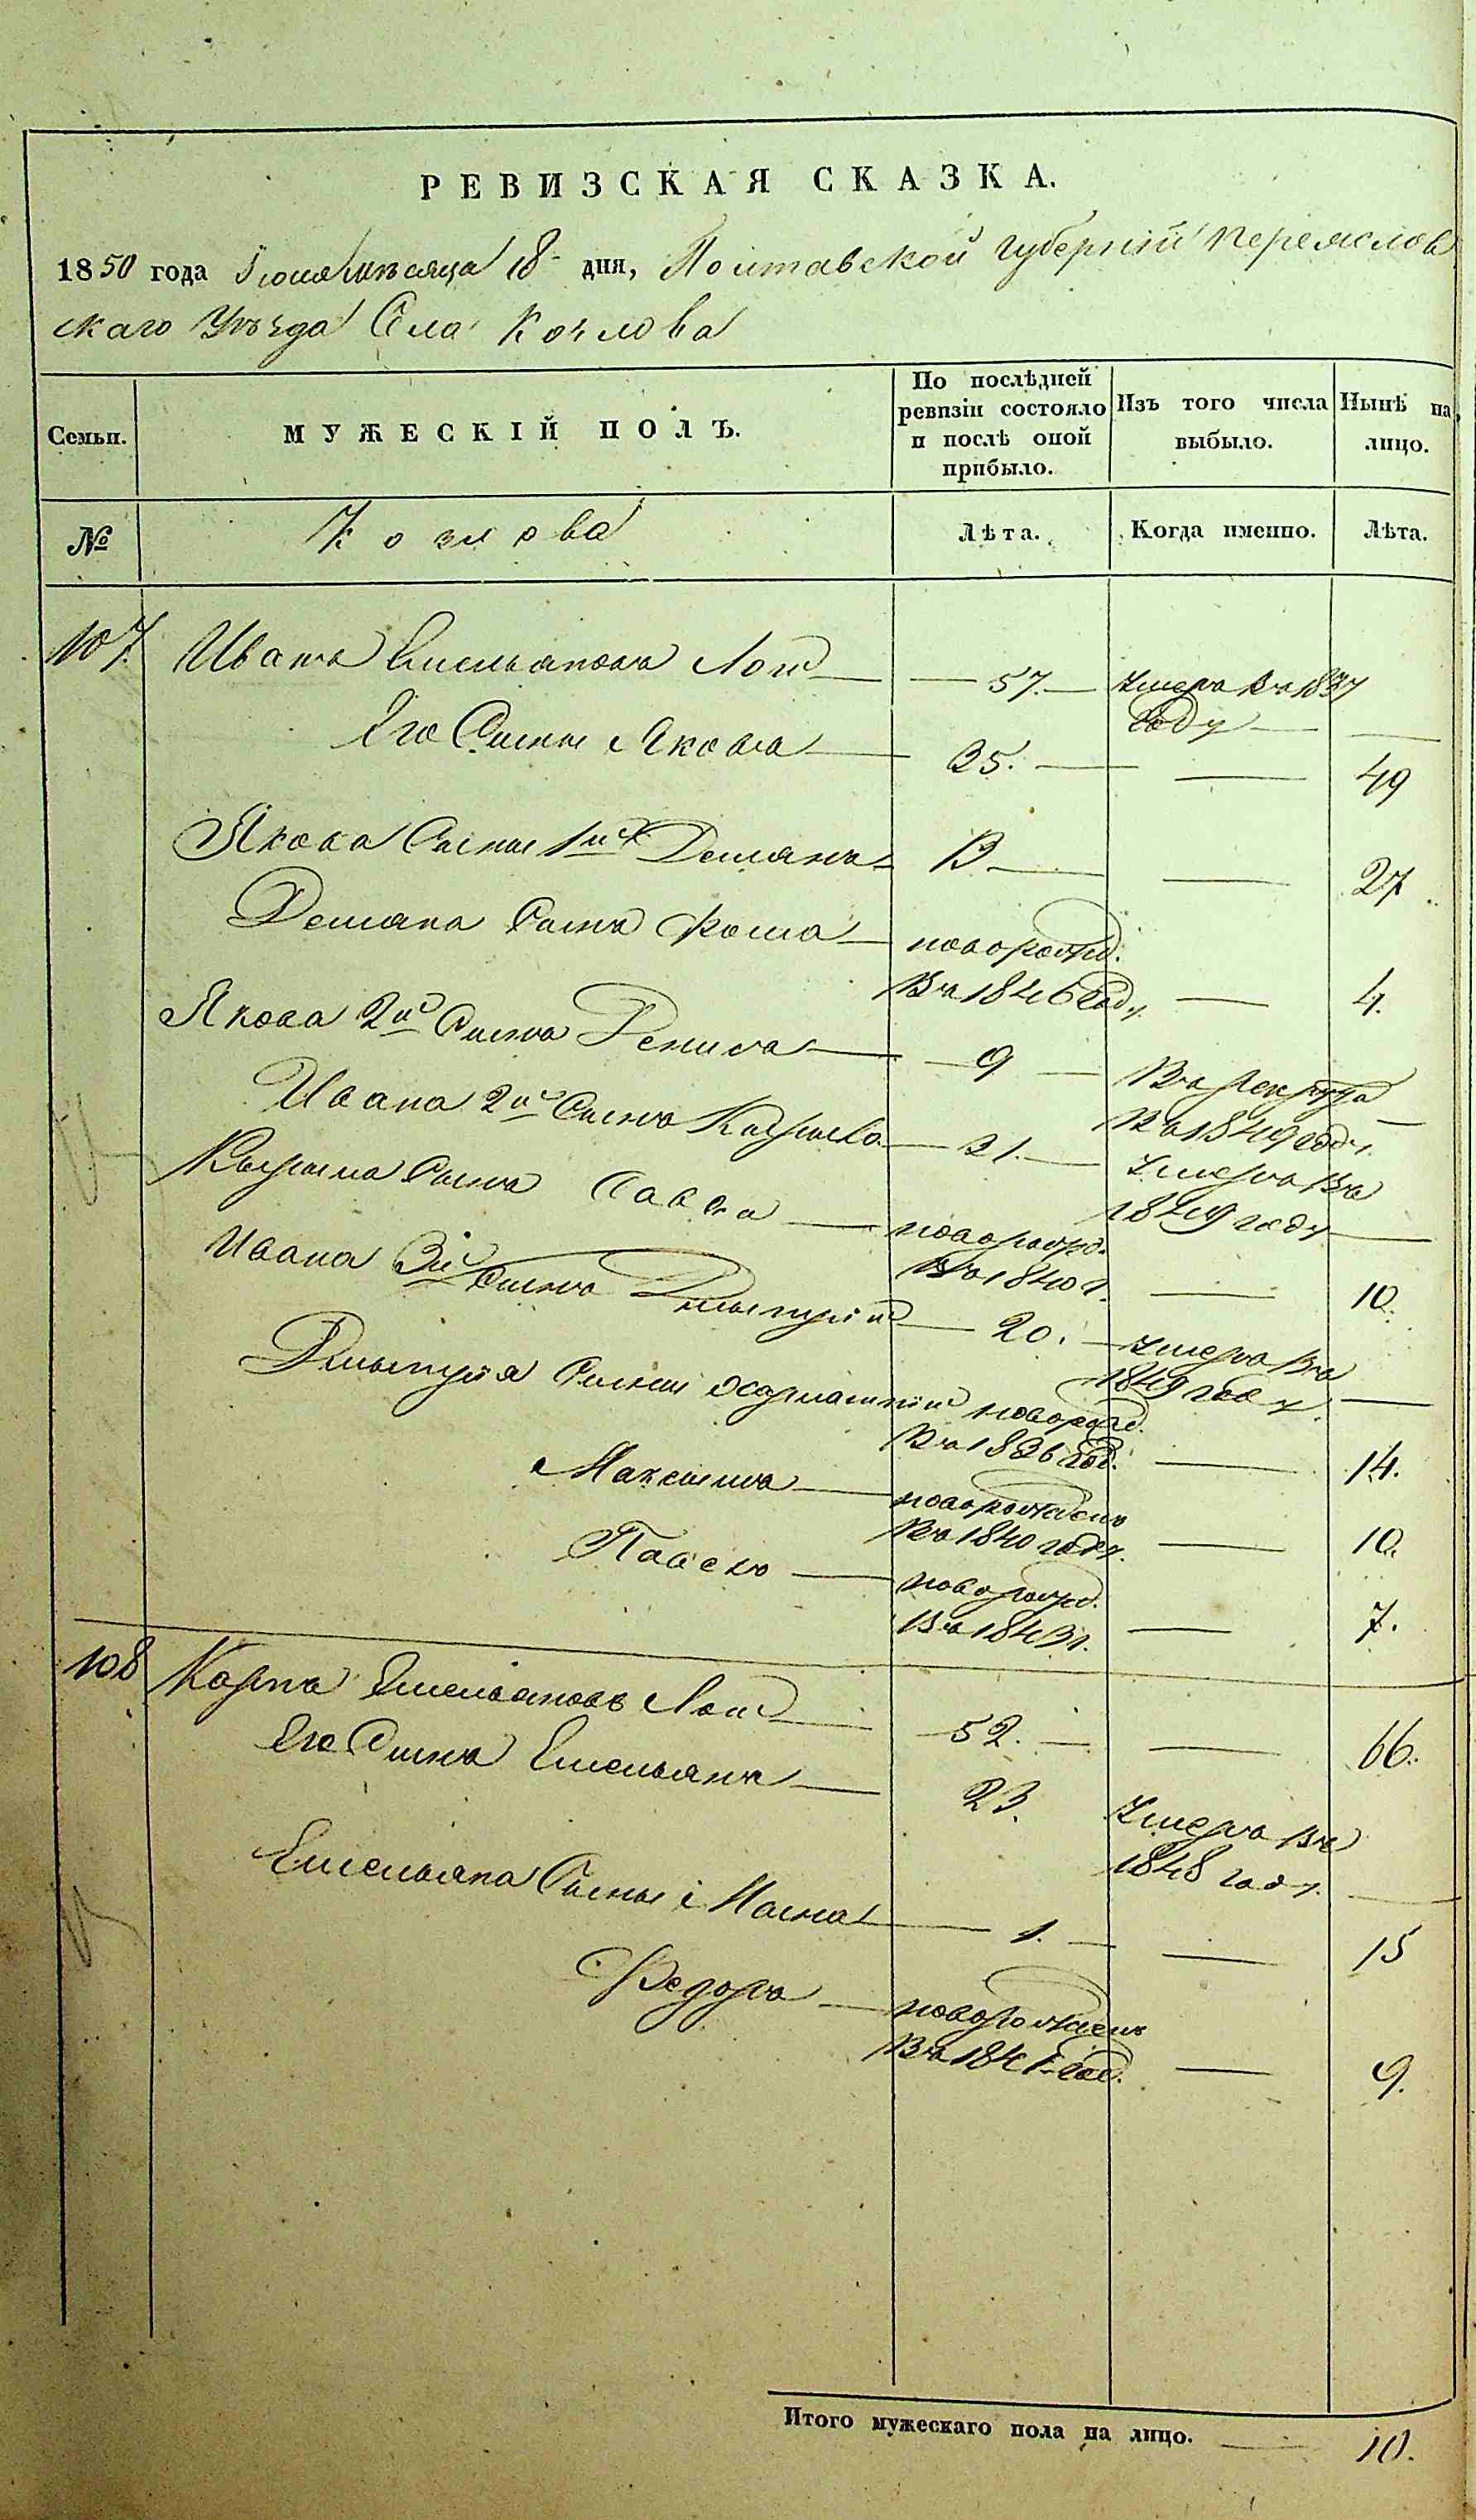 РЕВИЗСКАЯ СКАЗКА.
1850 года Іюня мѣсяца 18 дня, Полтавской губерніи Переяслов
скаго Уѣзда Села Козлова
Семьи. МУЖЕСКІЙ ПОЛЪ. По послѣдней ревизіи состояло и послѣ оной прибыло. Изъ того числа выбыло. Нынѣ на лицо.
№ Козлова Лѣта. Когда именно. Лѣта.
107. Иванъ Емельяновъ Лой 57. Умеръ въ 1837
году
Его Сынъ Яковъ 35. 49
Якова Сыны 1й Демянъ 13 27
Демяна Сынъ Фома новорожд.
въ 1846 году 4.
Якова 2й Сынъ Денисъ 9 Въ рекрута
въ 1849 году
Ивана 2й Сынъ Кирило 31. Умеръ въ
1849 году
Кирила Сынъ Савва новорожд.
въ 1840 г. 10.
Ивана 3й Сынъ Дмытрій 20. Умеръ въ
1849 году
Дмытрія Сыны новорожд.
въ 1836 год. 14.
Максимъ новорожденъ
въ 1840 году. 10.
Павело новорожд.
въ 1843 г. 7.
108 Карпъ Емельяновъ Лой 52. 66.
Его Сынъ Емельянъ 23. Умеръ въ
1848 году.
Емельяна Сыны 1. 15
Федоръ новорожденъ
въ 1841 год. 9.
Итого мужескаго пола на лицо. 10.